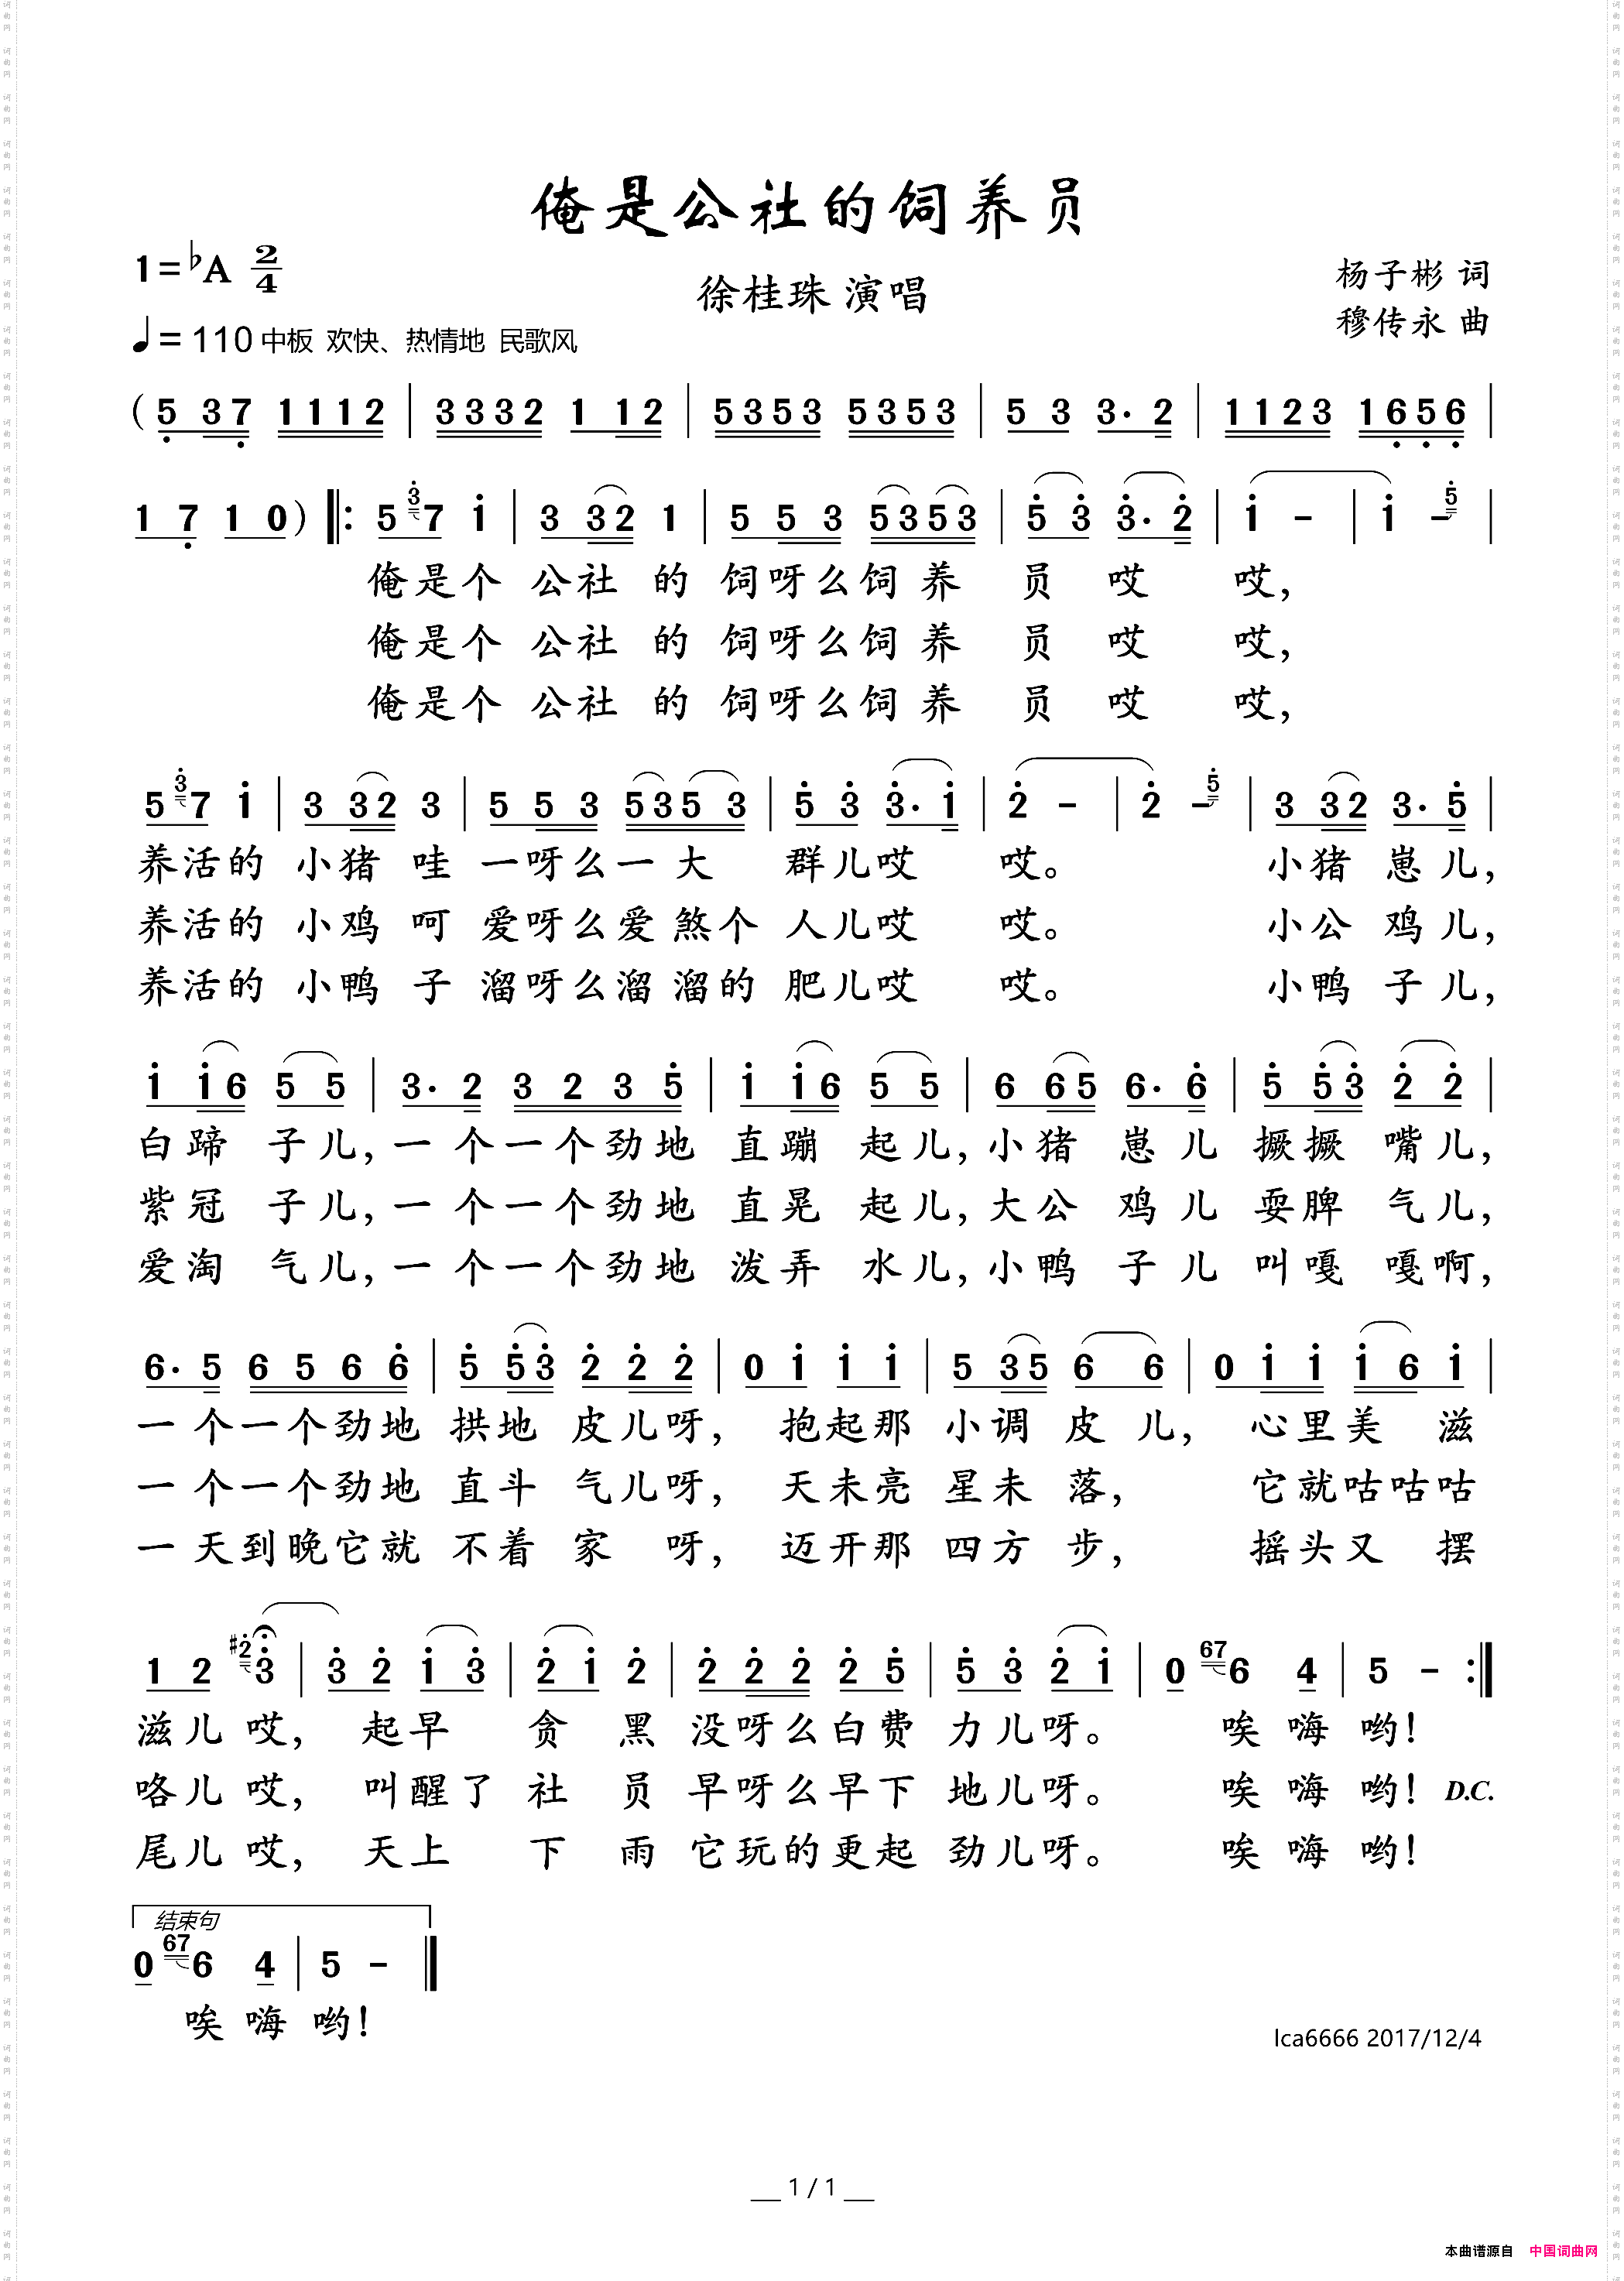 俺是公社的饲养员
1=♭A 2/4
徐桂珠 演唱
杨子彬 词
穆传永 曲
♩= 110 中板 欢快、热情地 民歌风
( 5 3 7 1 1 1 2 | 3 3 3 2 1 1 2 | 5 3 5 3 5 3 5 3 | 5 3 3· 2 | 1 1 2 3 1 6 5 6 |
1 7 1 0 ) ‖: 5 3 7 1 | 3 3 2 1 | 5 5 3 5 3 5 3 | 5 3 3· 2 | 1 - | 1 - 5 |
俺是个 公社 的 饲呀么饲 养 员 哎 哎，
俺是个 公社 的 饲呀么饲 养 员 哎 哎，
俺是个 公社 的 饲呀么饲 养 员 哎 哎，
5 3 7 1 | 3 3 2 3 | 5 5 3 5 3 5 3 | 5 3 3· 1 | 2 - | 2 - 5 | 3 3 2 3· 5 |
养活的 小猪 哇 一呀么一 大 群儿哎 哎。 小猪 崽儿，
养活的 小鸡 呵 爱呀么爱 煞个 人儿哎 哎。 小公 鸡儿，
养活的 小鸭 子 溜呀么溜 溜的 肥儿哎 哎。 小鸭 子儿，
1 1 6 5 5 | 3· 2 3 2 3 5 | 1 1 6 5 5 | 6 6 5 6· 6 | 5 5 3 2 2 |
白蹄 子儿，一 个一个劲地 直蹦 起儿，小猪 崽儿 撅撅 嘴儿，
紫冠 子儿，一 个一个劲地 直晃 起儿，大公 鸡儿 耍脾 气儿，
爱淘 气儿，一 个一个劲地 泼弄 水儿，小鸭 子儿 叫嘎 嘎啊，
6· 5 6 5 6 6 | 5 5 3 2 2 2 | 0 1 1 1 | 5 3 5 6 6 | 0 1 1 1 6 1 |
一 个一个劲地 拱地 皮儿呀， 抱起那 小调 皮儿， 心里美 滋
一 个一个劲地 直斗 气儿呀， 天未亮 星未 落， 它就咕咕咕
一 天到晚它就 不着 家 呀， 迈开那 四方 步， 摇头又 摆
1 2 #2 3 | 3 2 1 3 | 2 1 2 | 2 2 2 2 5 | 5 3 2 1 | 0 67 6 4 | 5 - :‖
滋儿 哎， 起早 贪 黑 没呀么白费 力儿呀。 唉 嗨 哟！
咯儿 哎， 叫醒了 社 员 早呀么早下 地儿呀。 唉 嗨 哟！ D.C.
尾儿 哎， 天上 下 雨 它玩的更起 劲儿呀。 唉 嗨 哟！
结束句
0 67 6 4 | 5 - ‖
唉 嗨 哟！
lca6666 2017/12/4
1 / 1
本曲谱源自 中国词曲网